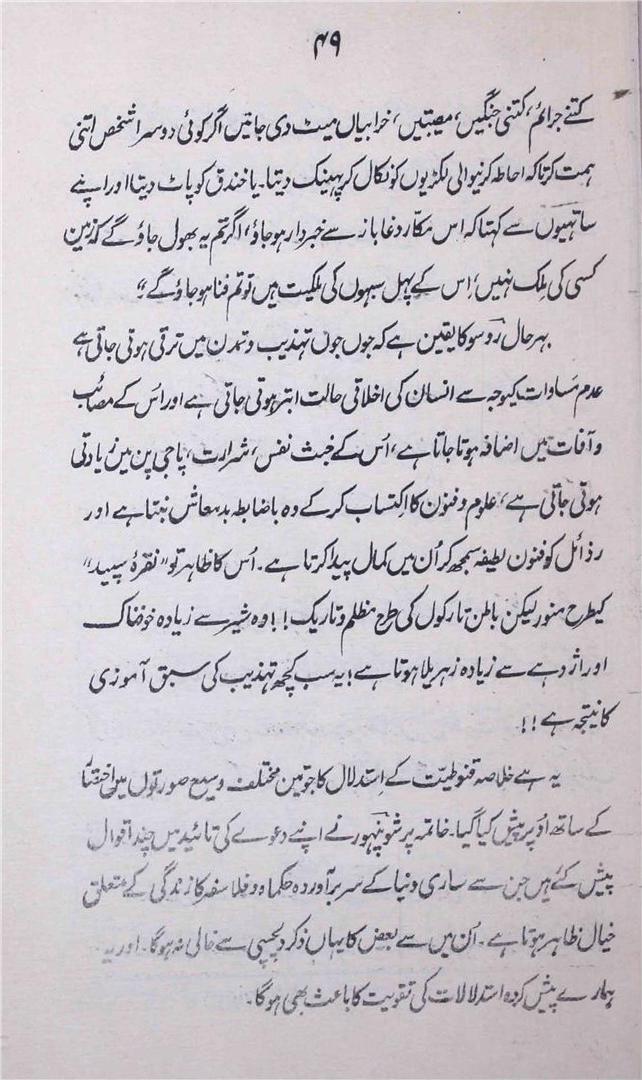 ۴۹
کتنے جرائم، کتنی جنگیں، مصیبتیں، خرابیاں میٹ دی جاتیں اگر کوئی دوسرا شخص اتنی
ہمت کرتا کہ احاطہ کرنیوالی لکڑیوں کو نکال کر پھینک دیتا۔ یا خندق کو پاٹ دیتا اور اپنے
ساتھیوں سے کہتا کہ اس مکّار دغا باز سے خبردار ہو جاؤ، اگر تم یہ بھول جاؤ گے کہ زمین
کسی کی مِلک نہیں، اِس کے پہل سبہوں کی ملکیت ہیں تو تم فنا ہو جاؤ گے"
بہر حال روسو کا یقین ہے کہ جوں جوں تہذیب و تمدن میں ترقی ہوتی جاتی ہے
عدم مساوات کیوجہ سے انسان کی اخلاقی حالت ابتر ہوتی جاتی ہے اور اس کے مصائب
و آفات میں اضافہ ہوتا جاتا ہے، اُس کے خبث نفس، شرارت، پاجی پن مین زیادتی
ہوتی جاتی ہے، علوم و فنون کا اکتساب کر کے وہ باضابطہ بدمعاش بنتا ہے اور
رذائل کو فنون لطیفہ سمجھ کر اُن میں کمال پیدا کرتا ہے۔ اُس کا ظاہر تو "نقرۂ سپید"
کیطرح منور لیکن باطن تارکول کی طرح مظلم و تاریک !! وہ شیر سے زیادہ خوفناک
اور اژدہے سے زیادہ زہریلا ہوتا ہے! یہ سب کچھ تہذیب کی سبق آموزی
کا نتیجہ ہے !!
یہ ہے خلاصہ قنوطیّت کے اِستدلال کا جو تین مختلف وسیع صورتوں میں اختصار
کے ساتھ اُوپر پیش کیا گیا۔ خاتمہ پر شوپنہور نے اپنے دعوے کی تائید میں چند اقوال
پیش کئے ہیں جن سے ساری دنیا کے سربرآوردہ حکماء و فلاسفہ کا زندگی کے متعلق
خیال ظاہر ہوتا ہے۔ اُن میں سے بعض کا یہاں ذکر دلچسپی سے خالی نہ ہوگا۔ اور یہ
ہمارے پیش کردہ استدلالات کی تقویت کا باعث بھی ہوگا۔